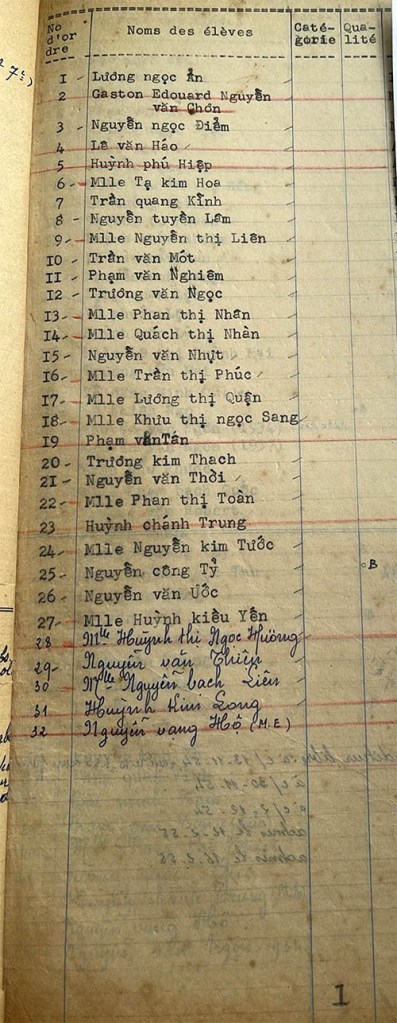 No d'or dre Noms des élèves Caté- gorie Qua- lité
7°)
1 - Lương ngọc Ẩn
2 Gaston Edouard Nguyễn
văn Chơn
3 - Nguyễn ngọc Điểm
4 Lê văn Háo
5 Huỳnh phú Hiệp
6 - Mlle Tạ kim Hoa
7 Trần quang Kỉnh
8 - Nguyễn tuyền Lâm
9 - Mlle Nguyễn thị Liên
10 - Trần văn Mót
11 - Phạm văn Nghiêm
12 - Trương văn Ngọc
13 - Mlle Phan thị Nhân
14 - Mlle Quách thị Nhàn
15 - Nguyễn văn Nhựt
16 - Mlle Trần thị Phúc
17 - Mlle Lương thị Quận
18 - Mlle Khưu thị ngọc Sang
19 Phạm văn Tấn
20 - Trương kim Thach
21 - Nguyễn văn Thời
22 - Mlle Phan thị Toàn
23 Huỳnh chánh Trung
24 - Mlle Nguyễn kim Tước
25 - Nguyễn công Tỷ B
26 - Nguyễn văn Ước
27 - Mlle Huỳnh kiều Yến
28 Mlle Huỳnh thị Ngọc Hương
29 - Nguyễn văn Thiện
30 Mlle Nguyễn bach Liên
31 Huỳnh Kim Long
32 Nguyễn vang Hộ (M.E)
1